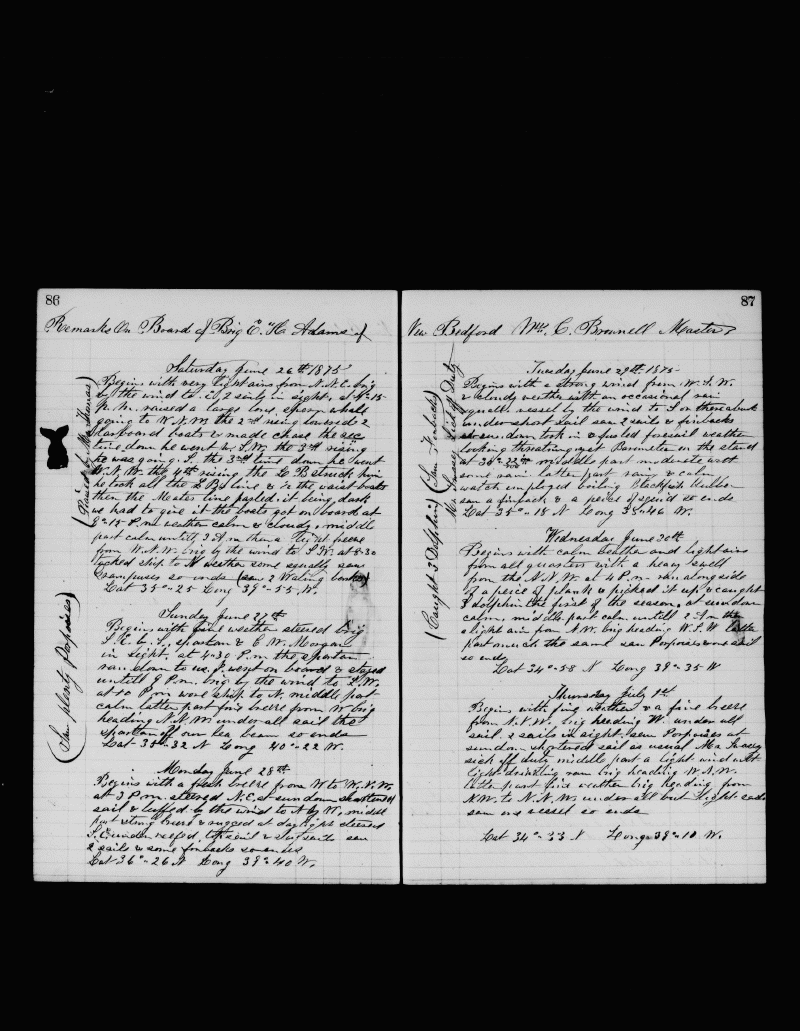 86
Remarks On Board of Brig E. H. Adams of
(Raised by Mr Thomas)
Saturday June 26th 1875
Begins with very light airs from N.N.E. brig
by the wind to 2 sails in sight, at 4-15
P.M. raised a large lone sperm whale
going to W.N.W. the 2nd rising lowered 2
larboard boats & made chase the sec
time down he went to S.W. the 3rd rising
he was going S. the 3rd time down he went
W.N.W. the 4th rising the L.B. struck him
he took all the L.B's line & the waist boats
then the Mates line it being dark
we had to give it the boats got on board at
8-15 P.m. weather calm & cloudy, middle
part calm untill 2 A.m. then a light breeze
from W.N.W. brig by the wind to S.W. at 8-30
tacked ship to N weather some squally saw
grampuses so ends (saw 2 Waling barks)
Lat 35°-25 Long 39°-55 W.
(Saw plenty Porpoises)
Sunday June 27th
Begins with fine weather steered brig
S.E. & S., spartan & C. W. Morgan
in sight, at 4-30 P.m. the spartan
ran down to us, went on board & stayed
untill 9 P.m. brig by the wind to S.W.
at 10 P.m. wore ship to N. middle part
calm latter part fine breeze from W brig
heading N.N.W. under all sail the
spartan off our lea beam so ends
Lat 35°-32 N Long 40°-22 W.
Monday June 28th
Begins with a fresh breeze from W to W.N.W.
at 3 P.m. steered N.E. at sundown shortened
sail & luffed to the wind to N by W, middle
part strong breeze & rugged at daylight steered
S.E. under reefed sail saw
2 sails & some finbacks so ends
Lat 36°-26 N Long 39°-40 W.
87
New Bedford Wm. C. Brownell Master
(Caught 3 Dolphin) (Saw Finbacks)
Mr Tracey Sick off Duty
Tuesday June 29th 1875
Begins with a strong wind from W.S.W.
& cloudy weather with an occasional rain
squall. vessel by the wind to S or thereabouts
under short sail saw 2 sails & finbacks
at sundown took in & furled foresail weather
looking threatning met Barimeter on the stand
at 30°. middle part moderate with
some rain. latter part rainy & calm
watch imployed boiling Blackfish blubber
saw a finback & a peice of squid so ends
Lat 35°-18 N Long 38°-46 W.
Wednesday June 30th
Begins with calm weather and light airs
from all quarters with a heavy swell
from the N.N.W. at 4 P.m. ran alongside
of a peice of plank & picked it up & caught
3 dolphin the first of the season, at sundown
calm, middle part calm untill 2 A m then
a light air from N.W. brig heading W.S.W. latter
part much the same saw Porpoises & one sail
so ends
Lat 34°-58 N Long 39°-35 W
Thursday July 1st
Begins with fine weather & a fine breeze
from N.N.W., brig heading W. under all
sail. 2 sails in sight. saw Porpoises at
sundown shortened sail as usual Mr Tracey
sick off duty middle part a light wind with
light drizzling rain brig heading W.N.W.
latter part fine weather brig heading from
N.W. to N.N.W. under all but light sails
saw one vessel so ends
Lat 34°-33 N Long 39°-10 W.